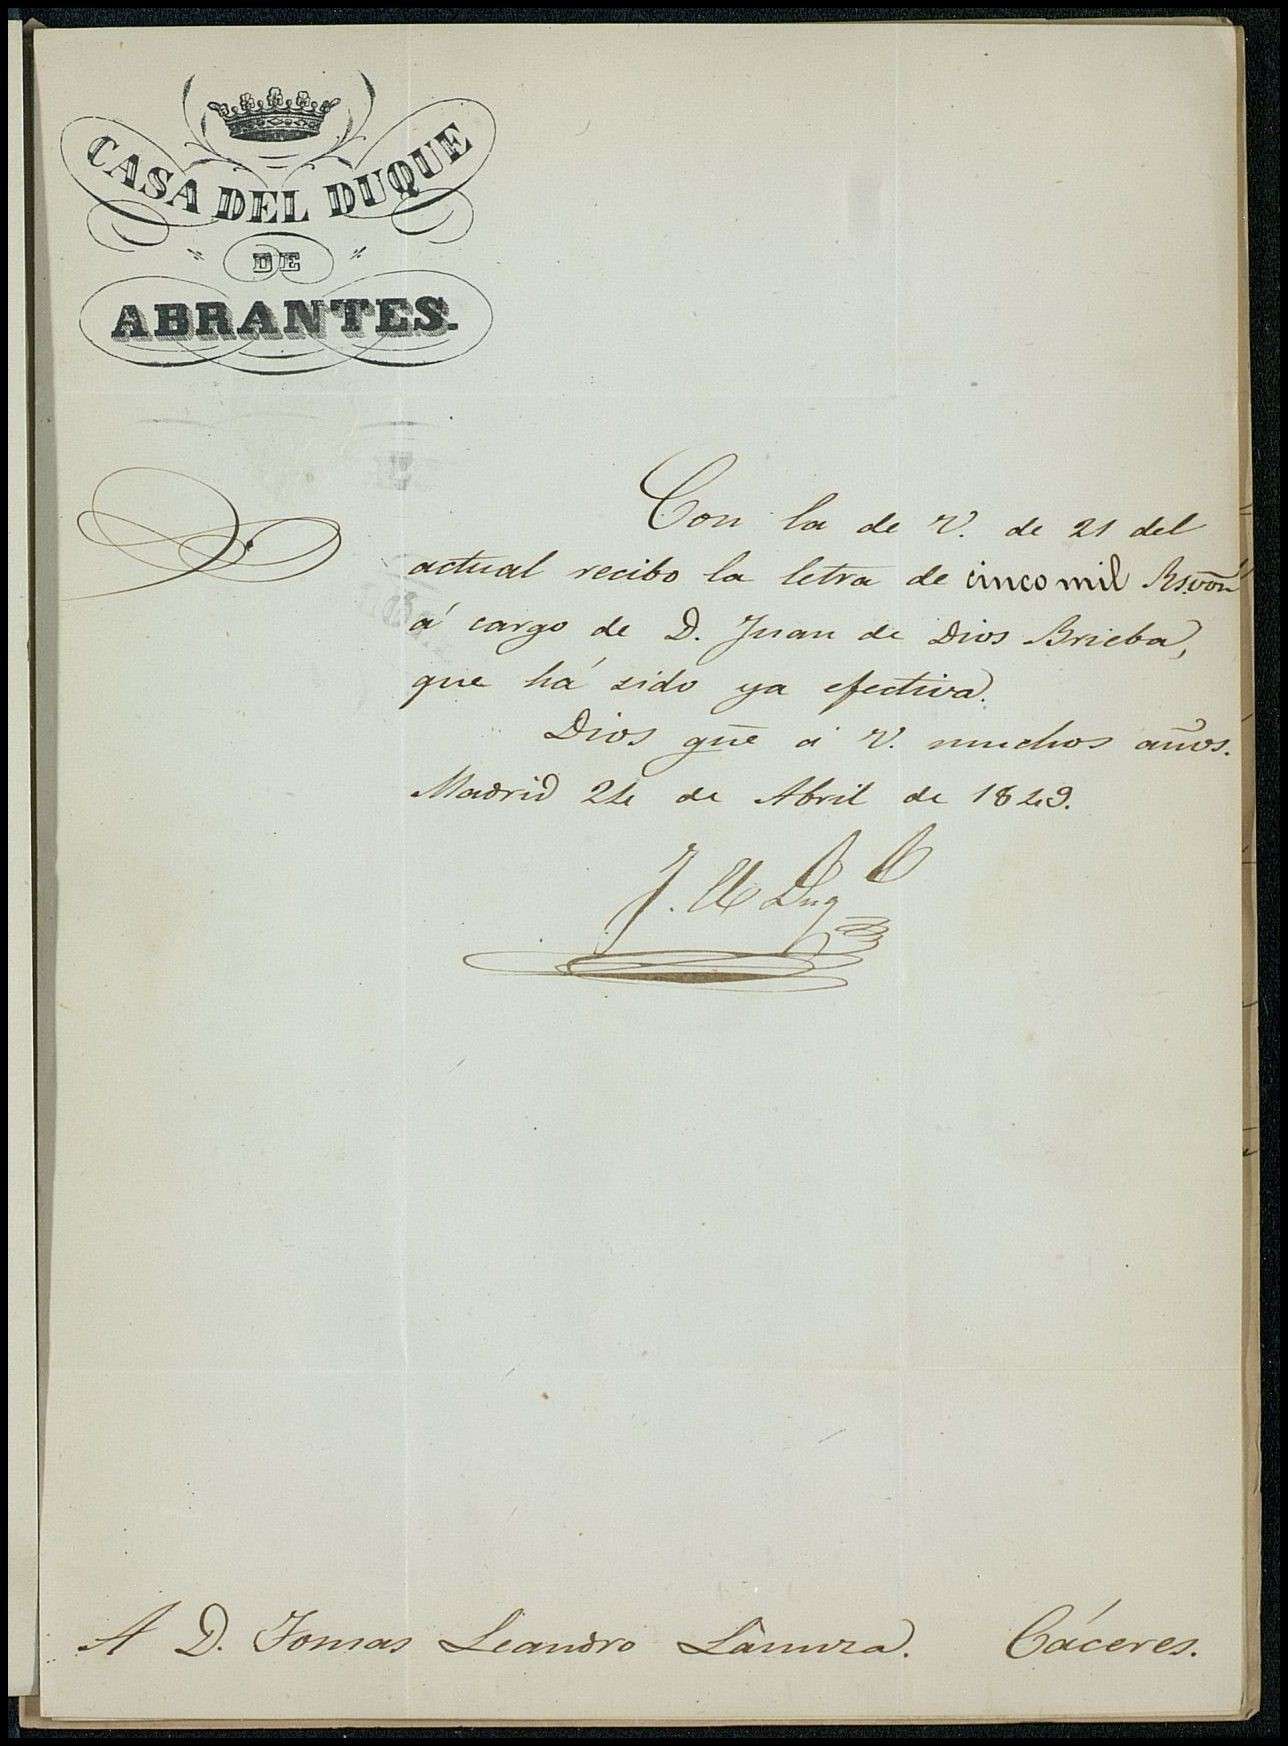 CASA DEL DUQUE
DE
ABRANTES.
Con la de V. de 21 del
actual recibo la letra de cinco mil Rs. von
á cargo de D. Juan de Dios Brieba,
que há sido ya efectiva.
Dios gūe á V. muchos años.
Madrid 24 de Abril de 1849.
A D. Tomas Leandro Lanuza. Cáceres.